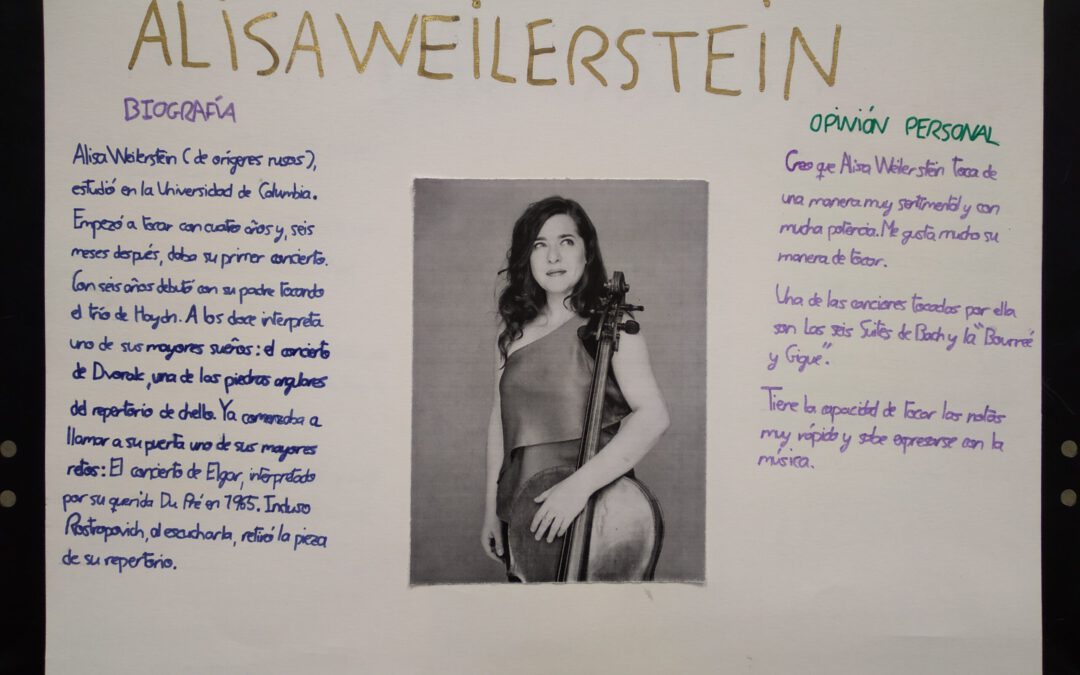 ALISA WEILERSTEIN
BIOGRAFÍA
Alisa Weilerstein (de orígenes rusos),
estudió en la Universidad de Columbia.
Empezó a tocar con cuatro años y, seis
meses después, daba su primer concierto.
Con seis años debutó con su padre tocando
el trío de Haydn. A los doce interpreta
uno de sus mayores sueños: el concierto
de Dvorak, una de las piedras angulares
del repertorio de chello. Ya comenzaba a
llamar a su puerta uno de sus mayores
retos: El concierto de Elgar, interpretado
por su querida Du Pré en 1965. Incluso
Rostropovich, al escucharla, retiró la pieza
de su repertorio.
OPINIÓN PERSONAL
Creo que Alisa Weilerstein toca de
una manera muy sentimental y con
mucha potencia. Me gusta mucho su
manera de tocar.
Una de las canciones tocadas por ella
son las seis Suites de Bach y la "Bourreé
y Gigue".
Tiene la capacidad de tocar las notas
muy rápido y sabe expresarse con la
música.